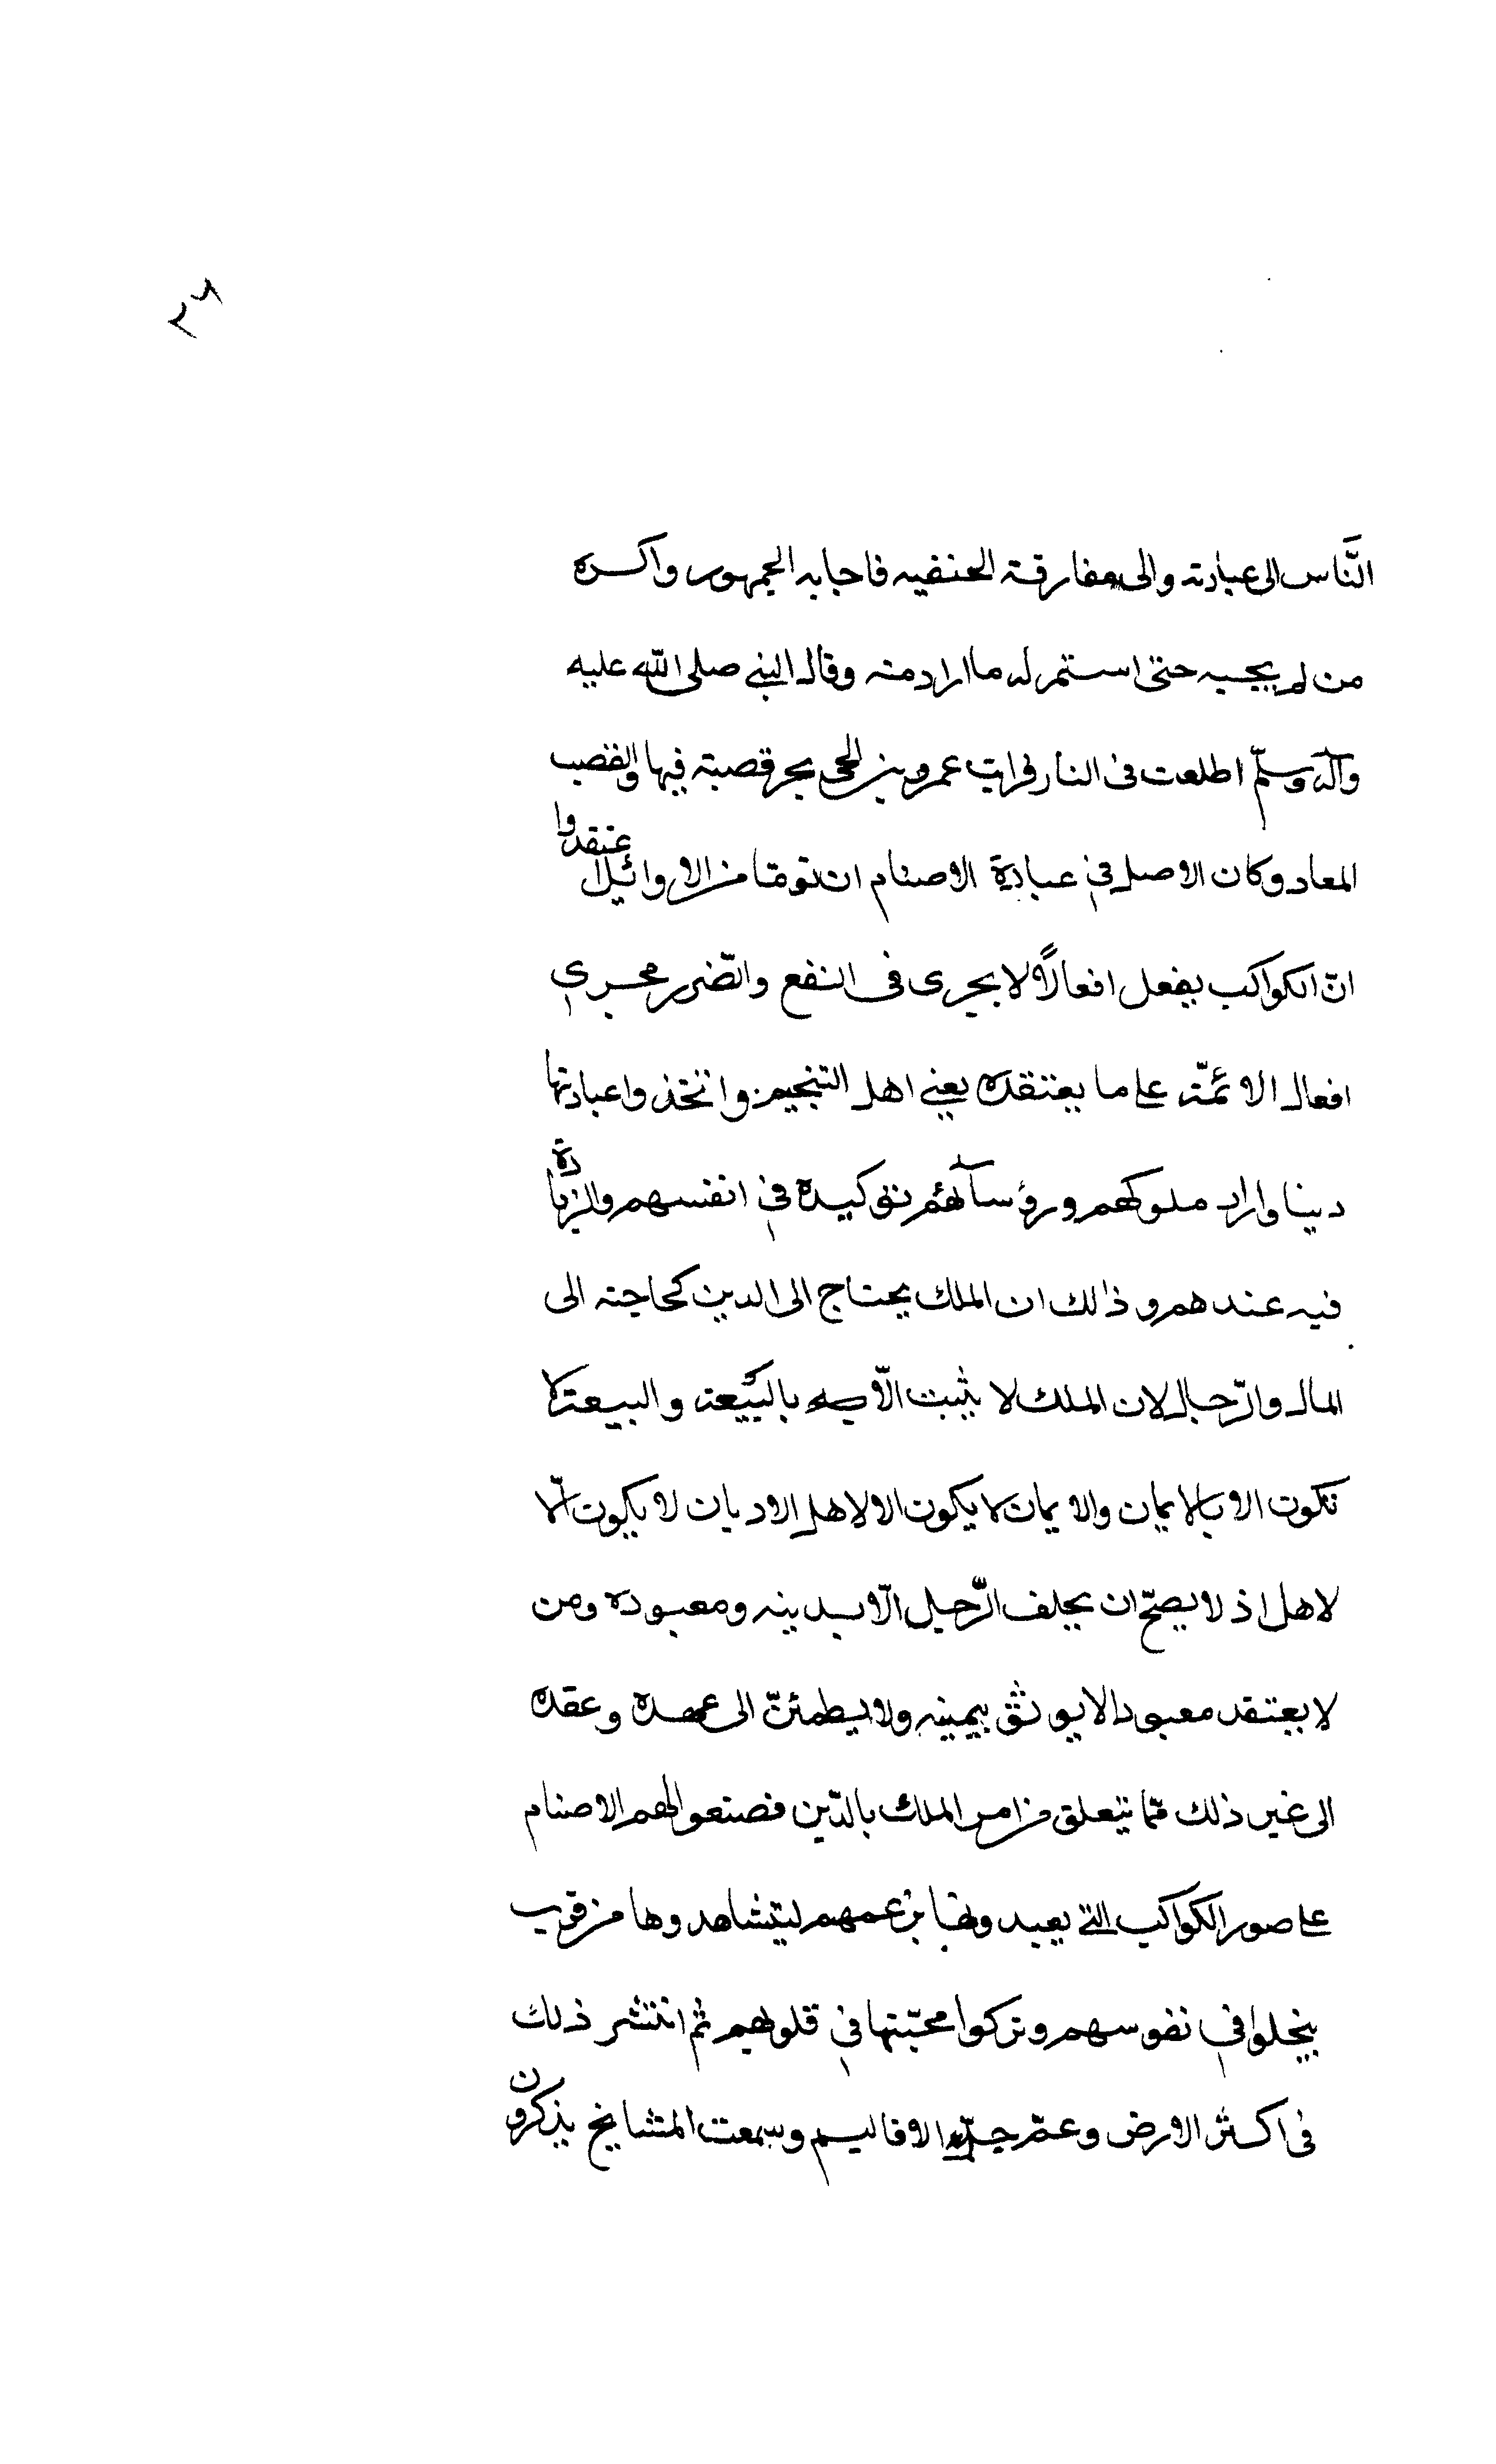 ٢٦
النَّاس الى عبادته والى مفارقة الحنفيه فاجابه الجمهور واكره
من لم يجبه حتى استمر له ما اراد منه وقال النبي صلى اللّه عليه
وآله وسلّم اطلعت فى النار فرايت عمرو بن لحى يجر قصبته فيها والقصب
المعاد وكان الاصل فى عبادة الاصنام ان قوما من الاوائل اعتقدوا
انّ الكواكب يفعل افعالاً لا يجرى فى النفع والضّرر مجرى
افعال الائمّة على ما يعتقده يعني اهل التنجيم واتخذوا عبادتها
دينا واراد ملوكهم ورؤسآئهم توكيده في انفسهم والزيادة
فيه عندهم وذالك ان الملك يحتاج الى الدين كحاجته الى
المال والرّجال لان الملك لا يثبت الّا بالبَيْعة والبيعة لا
تكون الا بالايمان والايمان لا يكون الا لاهل الاديان لا يكون الّا
لاهل اذ لا يصحّ ان يحلف الرّجل الّا بدينه ومعبوده ومن
لا يعتقد معبودا لا يوثق بيمينه ولا يطمئنّ الى عهده وعقده
الى غير ذلك ممّا يتعلق من امر الملك بالدّين فصنعوا لهم الاصنام
على صور الكواكب التي يعبدونها بزعمهم ليتشاهدوها من قرب
يتخلوا في نفوسهم وتركوا محبّتها في قلوبهم ثم انتشر ذلك
فى اكثر الارض وعمّ جلّ الاقاليم وسمعت المشايخ يذكرون